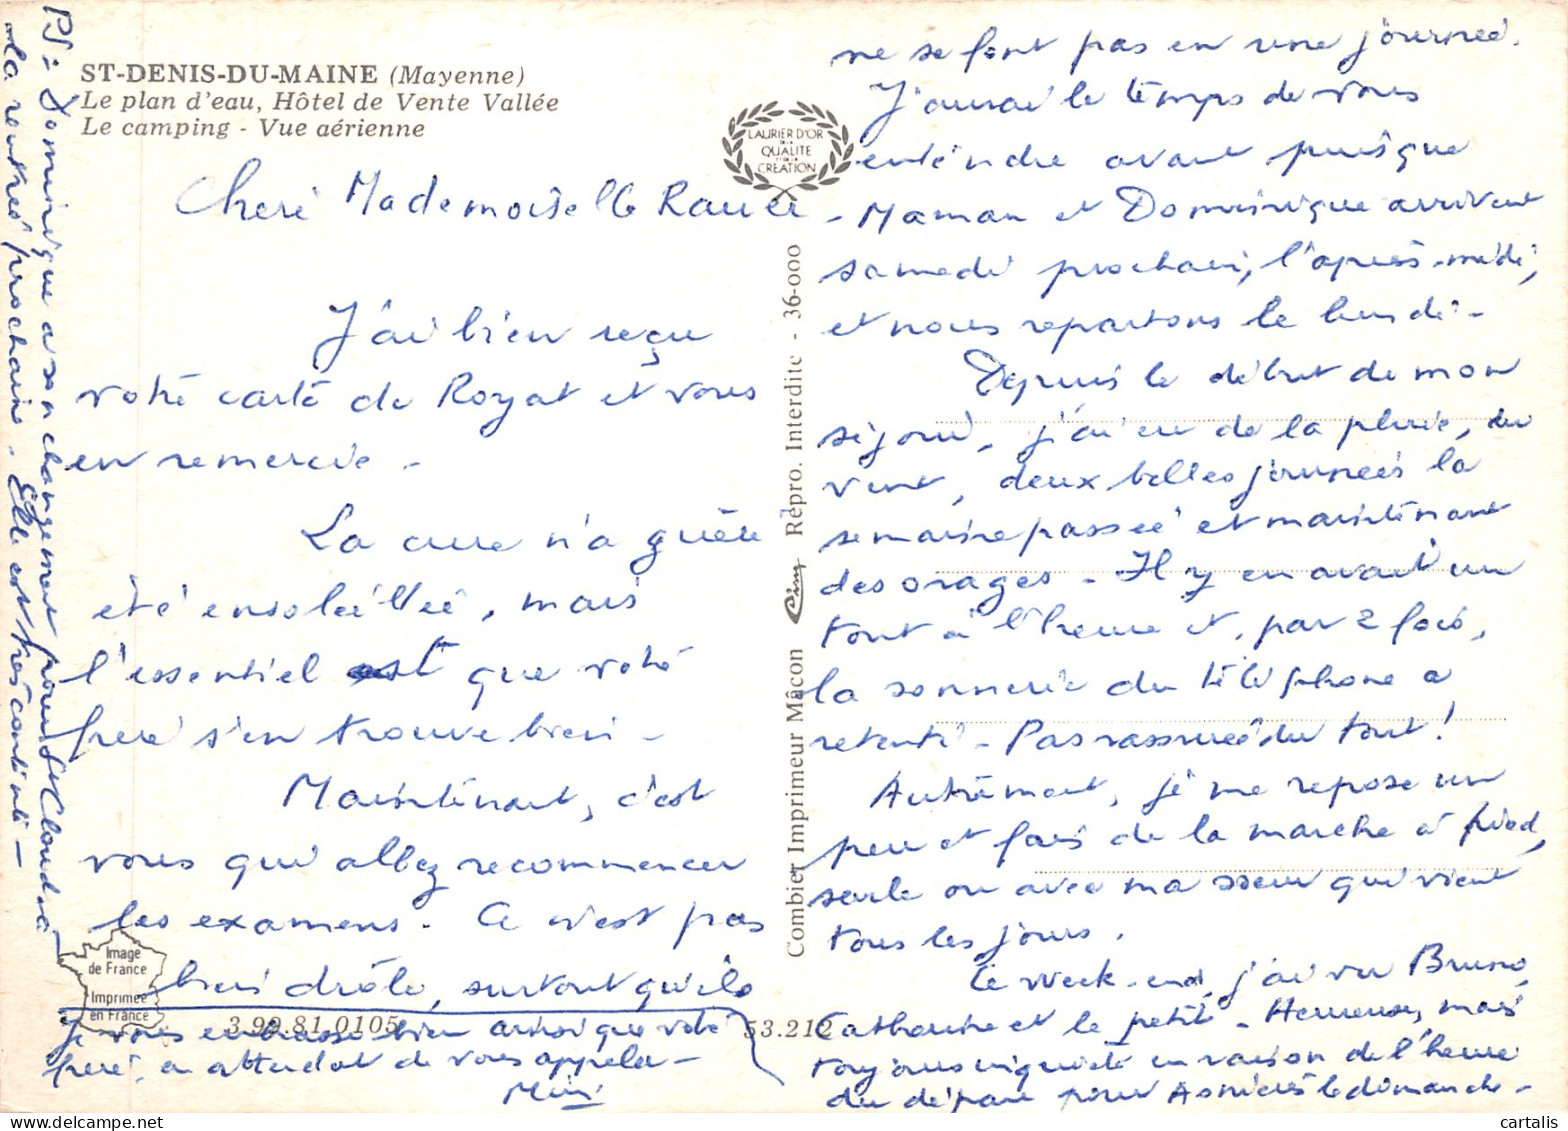 ST-DENIS-DU-MAINE (Mayenne)
Le plan d'eau, Hôtel de Vente Vallée
Le camping - Vue aérienne
LAURIER D'OR
DE LA
QUALITE
ET DE LA
CREATION
Chère Mademoiselle
J'ai bien reçu
votre carte de Royat et vous
en remercie.
La cure n'a guère
été ensoleillée, mais
l'essentiel est que votre
père s'en trouve bien -
Maintenant, c'est
vous qui allez recommencer
les examens. Ce n'est pas
bien drôle, surtout qu'ils
ne se font pas en une journée.
J'aurai le temps de vous
entendre avant puisque
Maman et Dominique arrivent
samedi prochain, l'après-midi,
et nous repartons le lundi -
Depuis le début de mon
séjour, j'ai eu de la pluie, du
vent, deux belles journées la
semaine passée et maintenant
des orages - Il y en avait un
tout à l'heure et, par 2 fois,
la sonnerie du téléphone a
retenti - Pas rassurée du tout !
Autrement, je me repose un
peu et fais de la marche à pied,
seule ou avec ma sœur qui vient
tous les jours.
Ce week-end, j'ai vu Bruno,
Catherine et le petit - Heureuse, mais
toujours inquiète en raison de l'heure
du départ pour Asnières le dimanche -
Je vous embrasse bien ainsi que votre
père, en attendant de vous appeler -
Mimi
PS : Dominique a son changement pour St Cloud à
la rentrée prochaine. Elle est très contente -
Combier Imprimeur Mâcon Cim Répro. Interdite - 36-000
Image
de France
Imprimée
en France
3.99.81.0105
53.212
cartalis